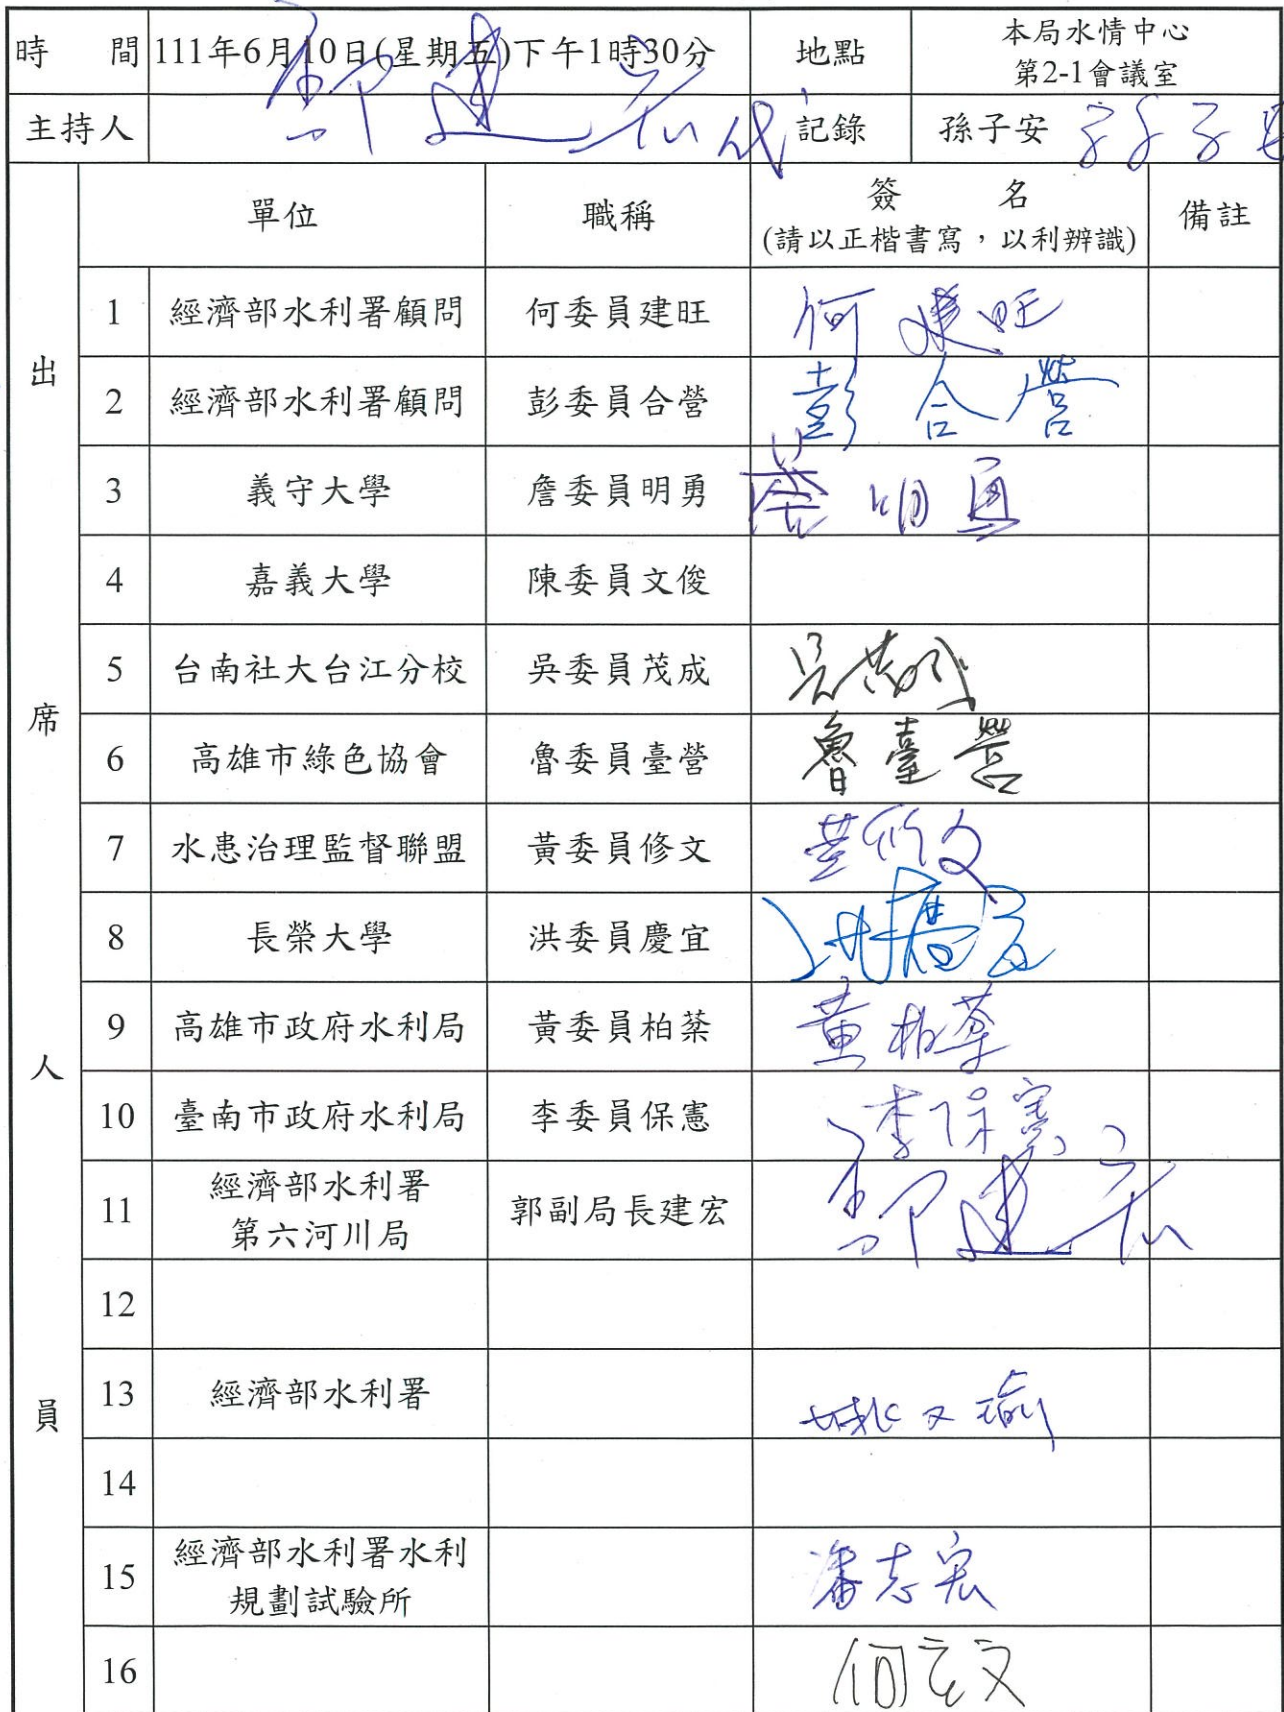 時 間 111年6月10日(星期五)下午1時30分 地點 本局水情中心
第2-1會議室
主持人 郭建宏代 記錄 孫子安 孫子安
出席人員
單位 職稱 簽 名 備註
(請以正楷書寫，以利辨識)
1 經濟部水利署顧問 何委員建旺 何建旺
2 經濟部水利署顧問 彭委員合營 彭合營
3 義守大學 詹委員明勇 詹明勇
4 嘉義大學 陳委員文俊
5 台南社大台江分校 吳委員茂成 吳茂成
6 高雄市綠色協會 魯委員臺營 魯臺營
7 水患治理監督聯盟 黃委員修文 黃修文
8 長榮大學 洪委員慶宜 洪慶宜
9 高雄市政府水利局 黃委員柏棻 黃柏棻
10 臺南市政府水利局 李委員保憲 李保憲
11 經濟部水利署
第六河川局 郭副局長建宏 郭建宏
12
13 經濟部水利署
14
15 經濟部水利署水利
規劃試驗所 潘志宏
16